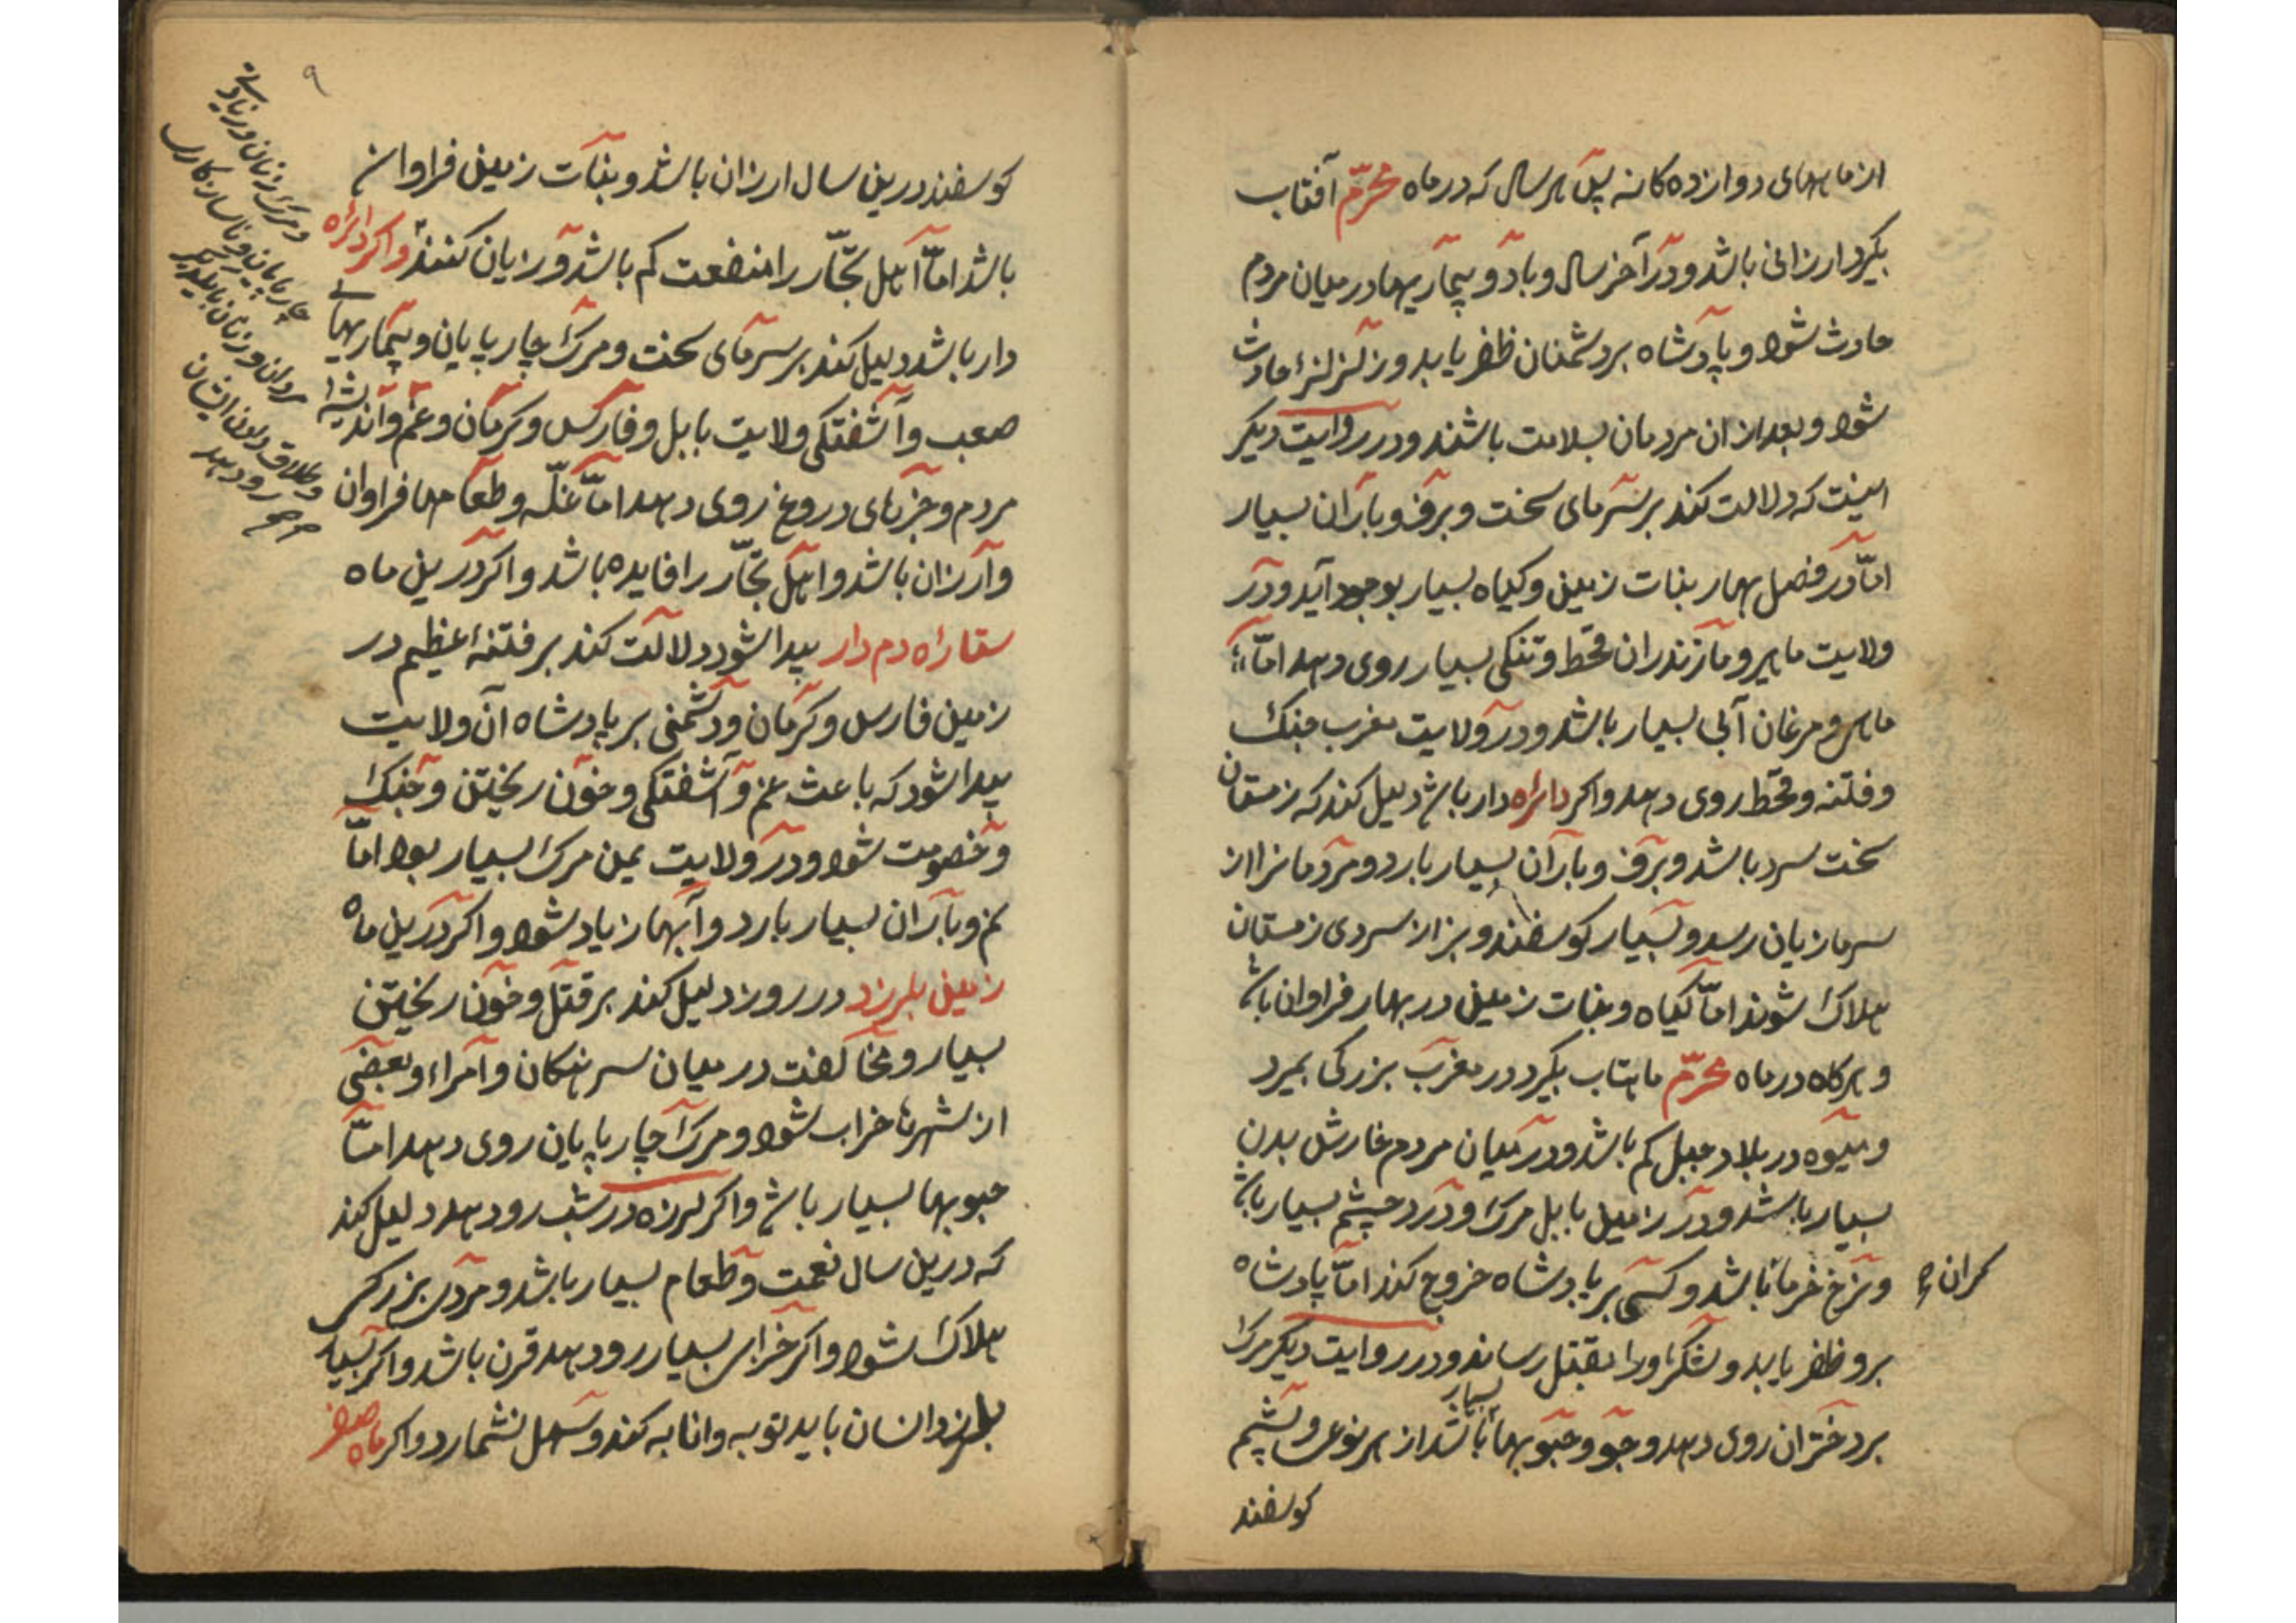 از ماههای دوازده کانه پس هر سال که در ماه محرّم آفتاب
بگیرد ارزانی باشد و در آخر سال و باد و بیماریها در میان مردم
حادث شود و پادشاه بر دشمنان ظفر یابد و زلزلزلهٔ حادث
شود و بعد از ان مردمان بسلامت باشند و در روایت دیکر
اینست که دلالت کند بر سرمای سخت و برف و باران بسیار
امّا در فصل بهار بنات زمین و کیاه بسیار بوجود آید و در
ولایت ماهی و مازندران قحط و تنکی بسیار روی دهد امّا
ماهی و مرغان آبی بسیار باشد و در ولایت مغرب جنک
و فتنه و قحط روی دهد و اکر دائره دار باشد دلیل کند که زمستان
سخت سرد باشد و برف و باران بسیار بارد و مردمانرا از
سرما زیان رسد و بسیار کوسفند و بز از سردی زمستان
هلاک شوند امّا کیاه و بنات زمین در بهار فراوان باشد
و هرکاه در ماه محرّم ماهتاب بگیرد در مغرب بزرکی بمیرد
و میوه در بلاد جبل کم باشد و در میان مردم خارش بدن
بسیار باشد و در زمین بابل مرک و درد چشم بسیار باشد
و نرخ خرما باشد و کسی بر پادشاه خروج کند امّا پادشاه
کران
برو ظفر یابد و لشکر او را بقتل رساند و در روایت دیکر مرک
بسیار
بر دختران روی دهد و جو و حبوبها باشد از هر نوعی و پشم
کوسفند
۹
کوسفند درین سال ارزان باشد و بنات زمین فراوان
باشد امّا اهل تجّار را منفعت کم باشد و زیان کنند و اکر دائره
دار باشد دلیل کند بر سرمای سخت و مرک چارپایان و بیماریهای
صعب و آشفتکی ولایت بابل و فارس و کرمان و غم و اندیشهٔ
مردم و خبرهای دروغ روی دهد امّا غلّه و طعامها فراوان
و ارزان باشد و اهل تجّار را فایده باشد و اکر درین ماه
ستاره دم دار پیدا شود دلالت کند بر فتنهٔ عظیم در
زمین فارس و کرمان و دشمنی بر پادشاه آن ولایت
پیدا شود که باعث غم و آشفتکی و خون ریختن و جنک
و خصومت شود و در ولایت یمن مرک بسیار بود امّا
نم و باران بسیار بارد و آبها زیاد شود و اکر درین ماه
زمین بلرزد در روز دلیل کند بر قتل و خون ریختن
بسیار و مخالفت در میان سرهنکان و امراء و بعضی
از شهرها خراب شود و مرک چارپایان روی دهد امّا
حبوبها بسیار باشد و اکر لرزه در شب رو دهد دلیل کند
که درین سال نعمت و طعام بسیار باشد و مردی بزرکی
هلاک شود و اکر خرابی بسیار رو دهد قرن باشد و اکر بسیار
بلرزد انسان باید توبه و انابه کند و سهل نشمارد و اکر ماه صفر
و مرک زنان و زیادتی
چارپایان و ناسازکاری
مردان و زنان با یکدیکر
و طلاق دادن ایشان
رو دهد